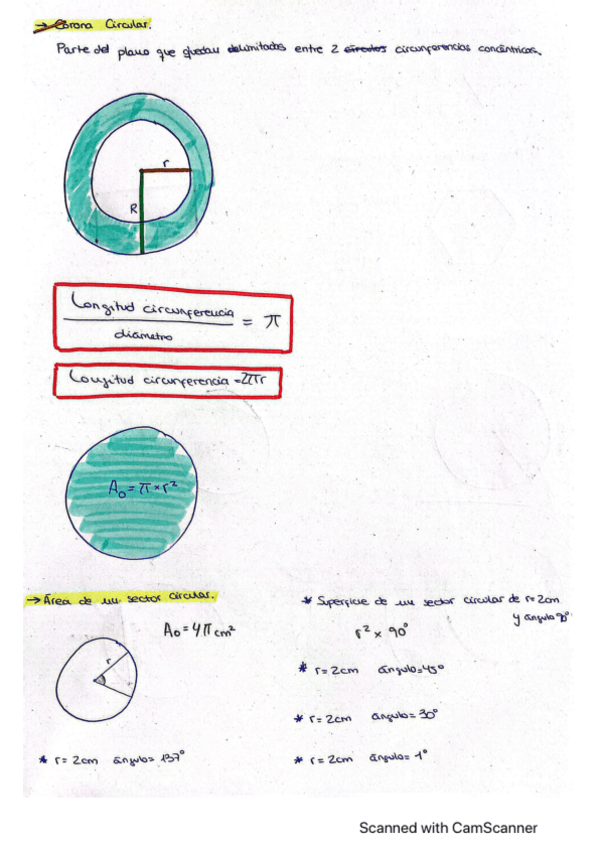 → Corona Circular.
Parte del plano que quedan delimitados entre 2 círculos circunferencias concéntricas.
r
R
Longitud circunferencia
diámetro
= π
Longitud circunferencia = 2πr
A₀ = π × r²
→ Área de un sector circular.
A₀ = 4π cm²
r
* r = 2cm ángulo = 137°
* Superficie de un sector circular de r = 2cm
y ángulo 90°
r² × 90°
* r = 2cm ángulo = 45°
* r = 2cm ángulo = 30°
* r = 2cm ángulo = 1°
Scanned with CamScanner